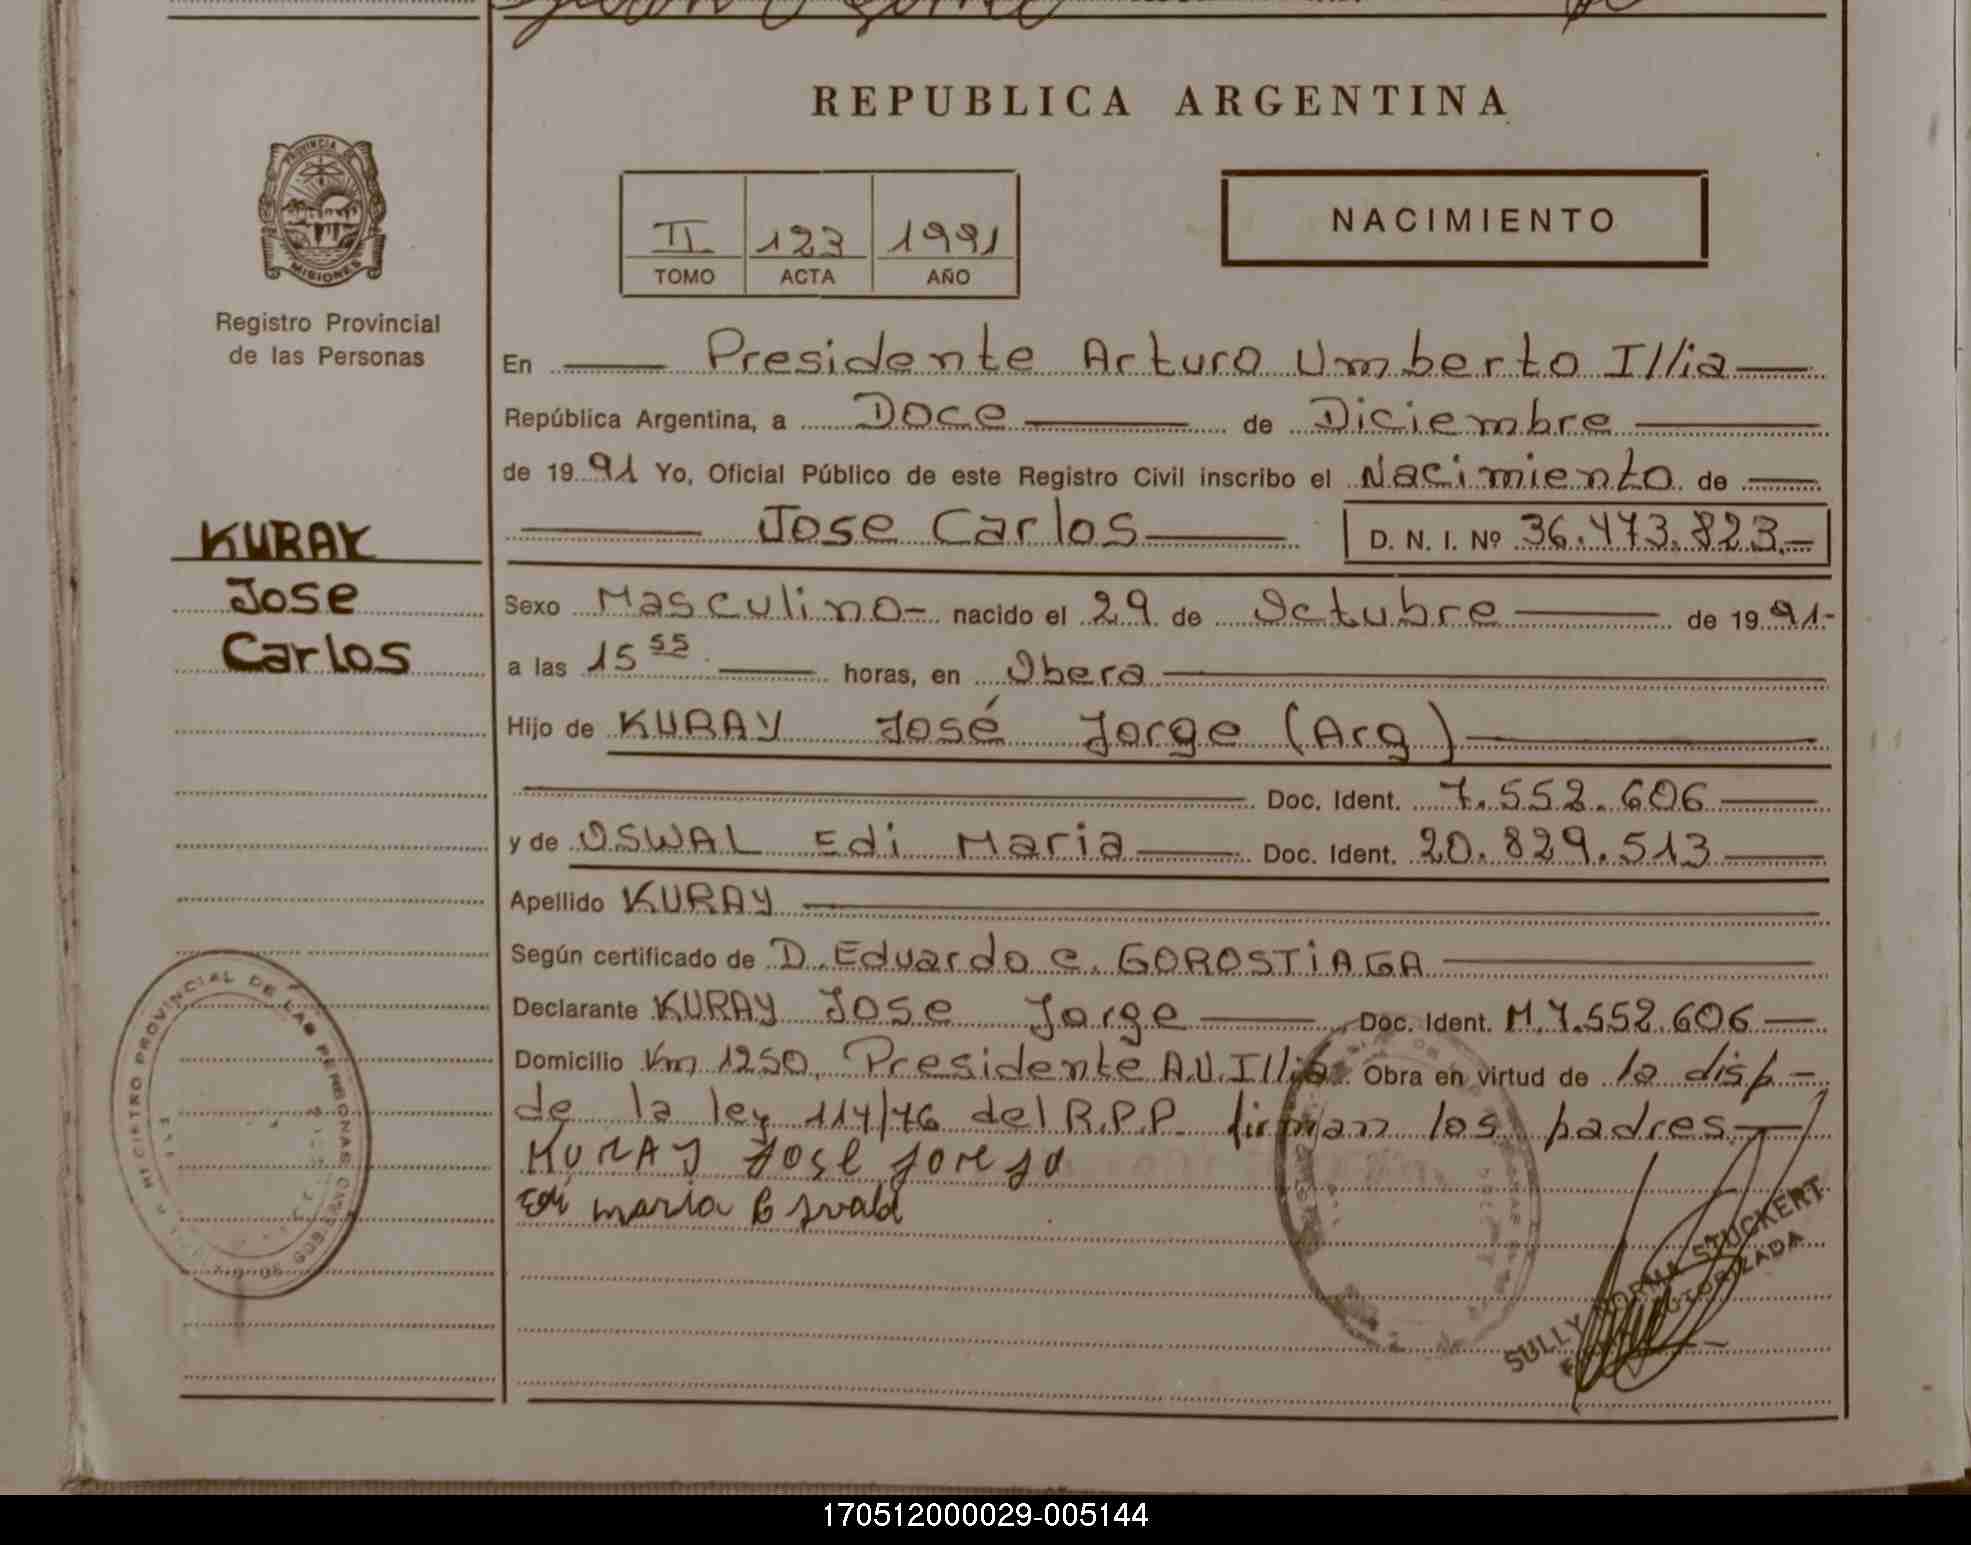 REPUBLICA ARGENTINA
PROVINCIA DE
MISIONES
Registro Provincial
de las Personas
II 123 1991
TOMO ACTA AÑO
NACIMIENTO
En Presidente Arturo Umberto Illia
República Argentina, a Doce de Diciembre
de 1991 Yo, Oficial Público de este Registro Civil inscribo el Nacimiento de
Jose Carlos D. N. I. Nº 36.473.823.-
KURAY
Jose
Carlos
Sexo Masculino- nacido el 29 de Octubre de 1991-
a las 15 55 horas, en Obera
Hijo de KURAY José Jorge (Arg)
Doc. Ident. 7.552.606
y de OSWAL Edi Maria Doc. Ident. 20.829.513
Apellido KURAY
Según certificado de D. Eduardo C. GOROSTIAGA
Declarante KURAY Jose Jorge Doc. Ident. M.7.552.606
Domicilio Km 1250, Presidente A.U.Illia. Obra en virtud de la disp-
de la ley 114/76 del R.P.P. firman los padres
KURAY José Jorge
Edi maria
REGISTRO PROVINCIAL DE LAS PERSONAS
SULLY NORMA STUCKERT
AUTORIZADA
170512000029-005144